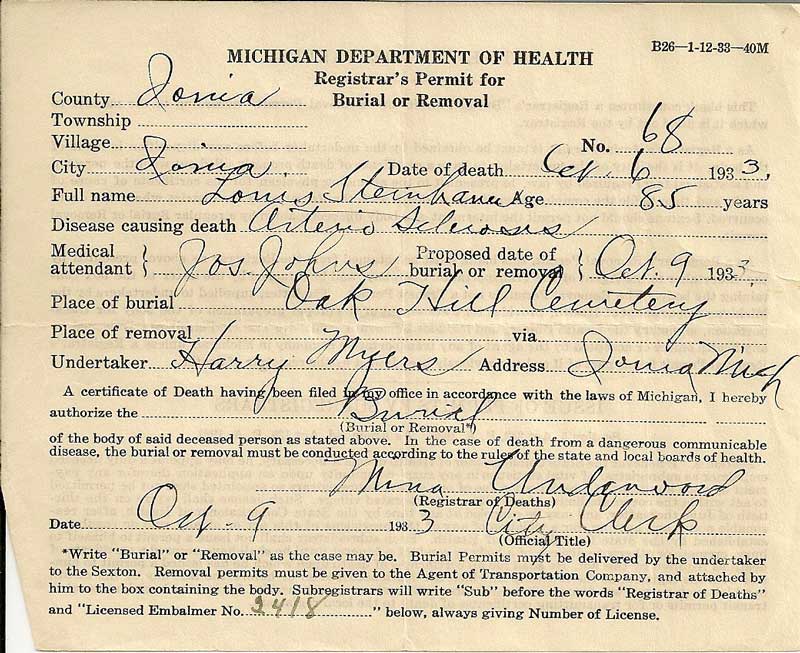 B26—1-12-33—40M
MICHIGAN DEPARTMENT OF HEALTH
Registrar's Permit for
Burial or Removal
County Ionia
Township
Village
No. 68
City Ionia. Date of death Oct. 6 1933,
Full name Louis Steinhauer Age 85 years
Disease causing death Arterio Sclerosis
Medical attendant } Jos. Johns Proposed date of burial or removal } Oct. 9 1933,
Place of burial Oak Hill Cemetery
Place of removal via
Undertaker Harry Myers Address Ionia Mich
A certificate of Death having been filed in my office in accordance with the laws of Michigan, I hereby
authorize the Burial
(Burial or Removal*)
of the body of said deceased person as stated above. In the case of death from a dangerous communicable
disease, the burial or removal must be conducted according to the rules of the state and local boards of health.
Mina Underwood
(Registrar of Deaths)
Date Oct. 9 1933 City Clerk
(Official Title)
*Write "Burial" or "Removal" as the case may be. Burial Permits must be delivered by the undertaker
to the Sexton. Removal permits must be given to the Agent of Transportation Company, and attached by
him to the box containing the body. Subregistrars will write "Sub" before the words "Registrar of Deaths"
and "Licensed Embalmer No. 2418" below, always giving Number of License.